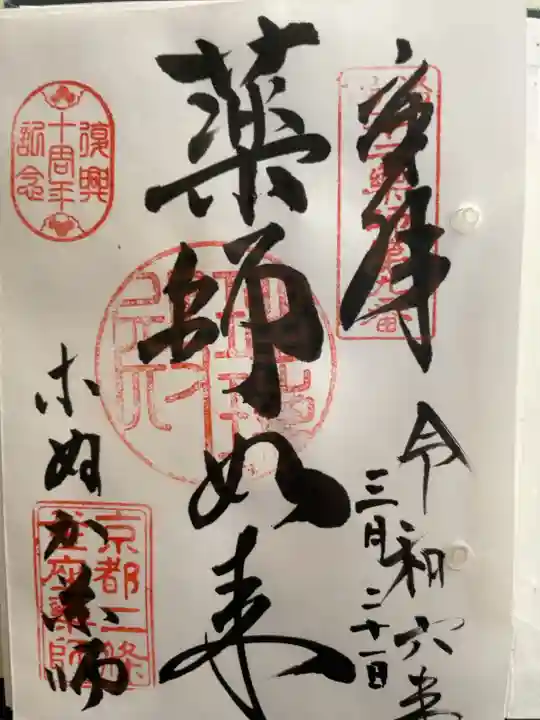 奉拝
令和六年
三月二十一日
薬師如来
こぬか薬師
復興
十周年
記念
京都二條
薬師